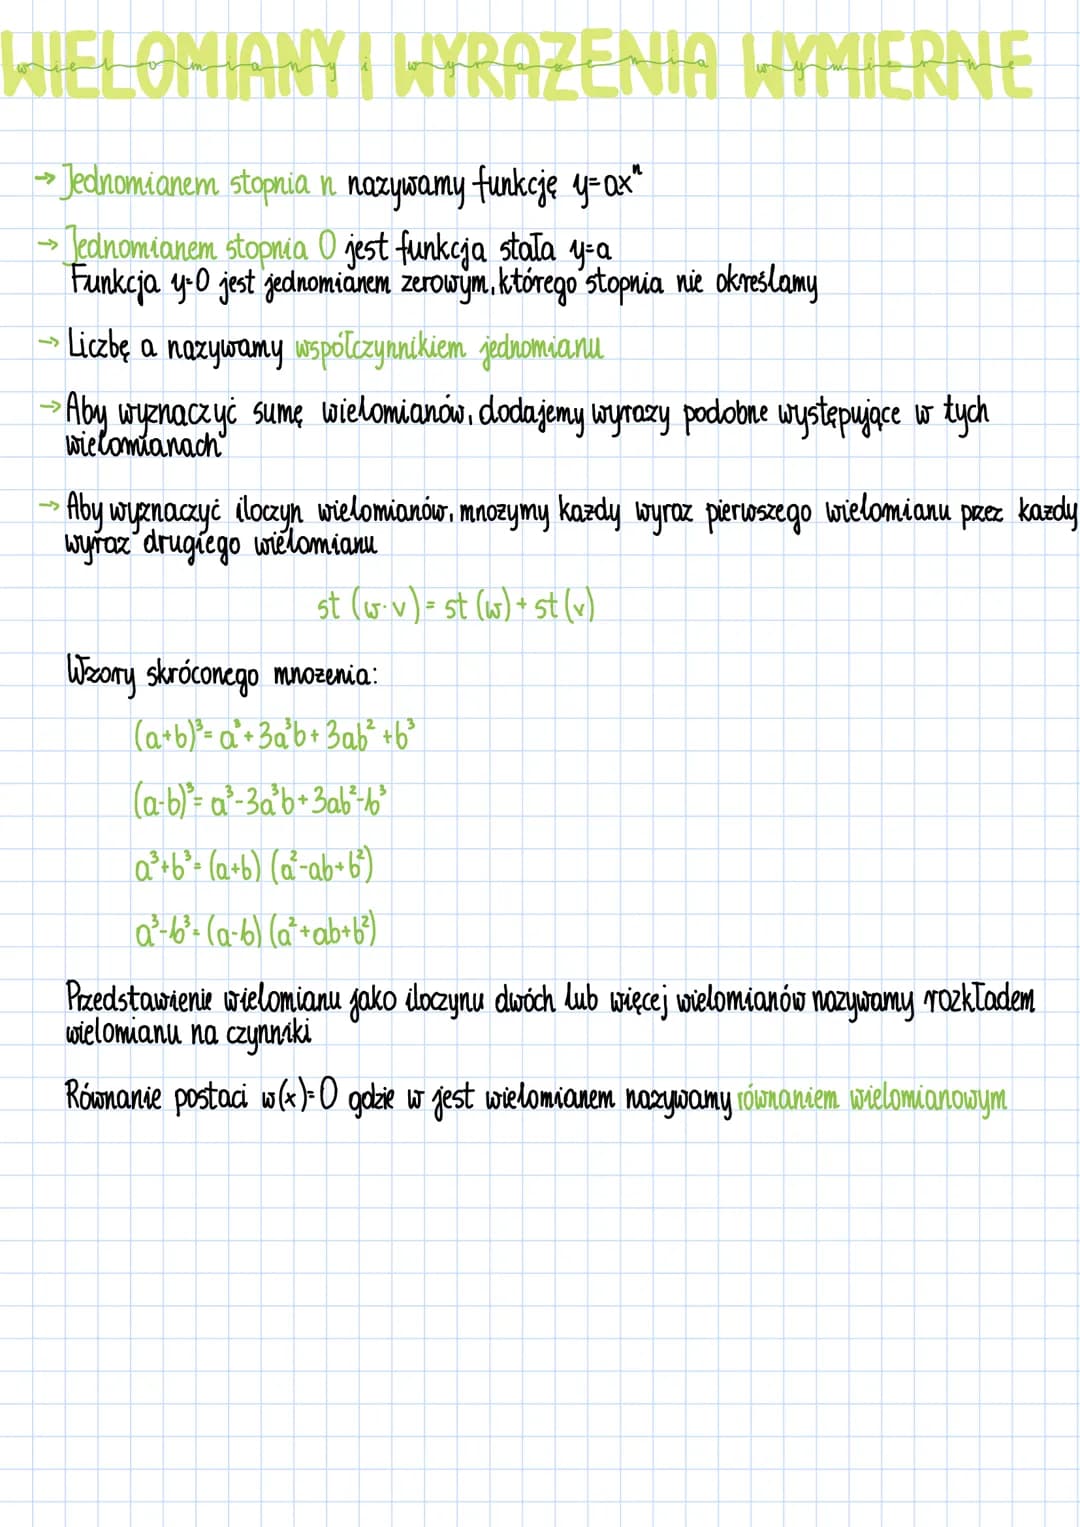 WIELOMIANY I WYRAŻENIA WYMIERNE
wielomiany i wyrażenia wymierne
→ Jednomianem stopnia n nazywamy funkcję y=axⁿ
→ Jednomianem stopnia 0 jest funkcja stała y=a
Funkcja y=0 jest jednomianem zerowym, którego stopnia nie określamy
→ Liczbę a nazywamy współczynnikiem jednomianu
→ Aby wyznaczyć sumę wielomianów, dodajemy wyrazy podobne występujące w tych
wielomianach
→ Aby wyznaczyć iloczyn wielomianów, mnożymy każdy wyraz pierwszego wielomianu przez każdy
wyraz drugiego wielomianu
st (w·v) = st (w) + st (v)
Wzory skróconego mnożenia:
(a+b)³= a³+3a³b+3ab²+b³
(a-b)³= a³-3a³b+3ab²-b³
a³+b³= (a+b) (a²-ab+b²)
a³-b³= (a-b) (a²+ab+b²)
Przedstawienie wielomianu jako iloczynu dwóch lub więcej wielomianów nazywamy rozkładem
wielomianu na czynniki
Równanie postaci w(x)=0 gdzie w jest wielomianem nazywamy równaniem wielomianowym